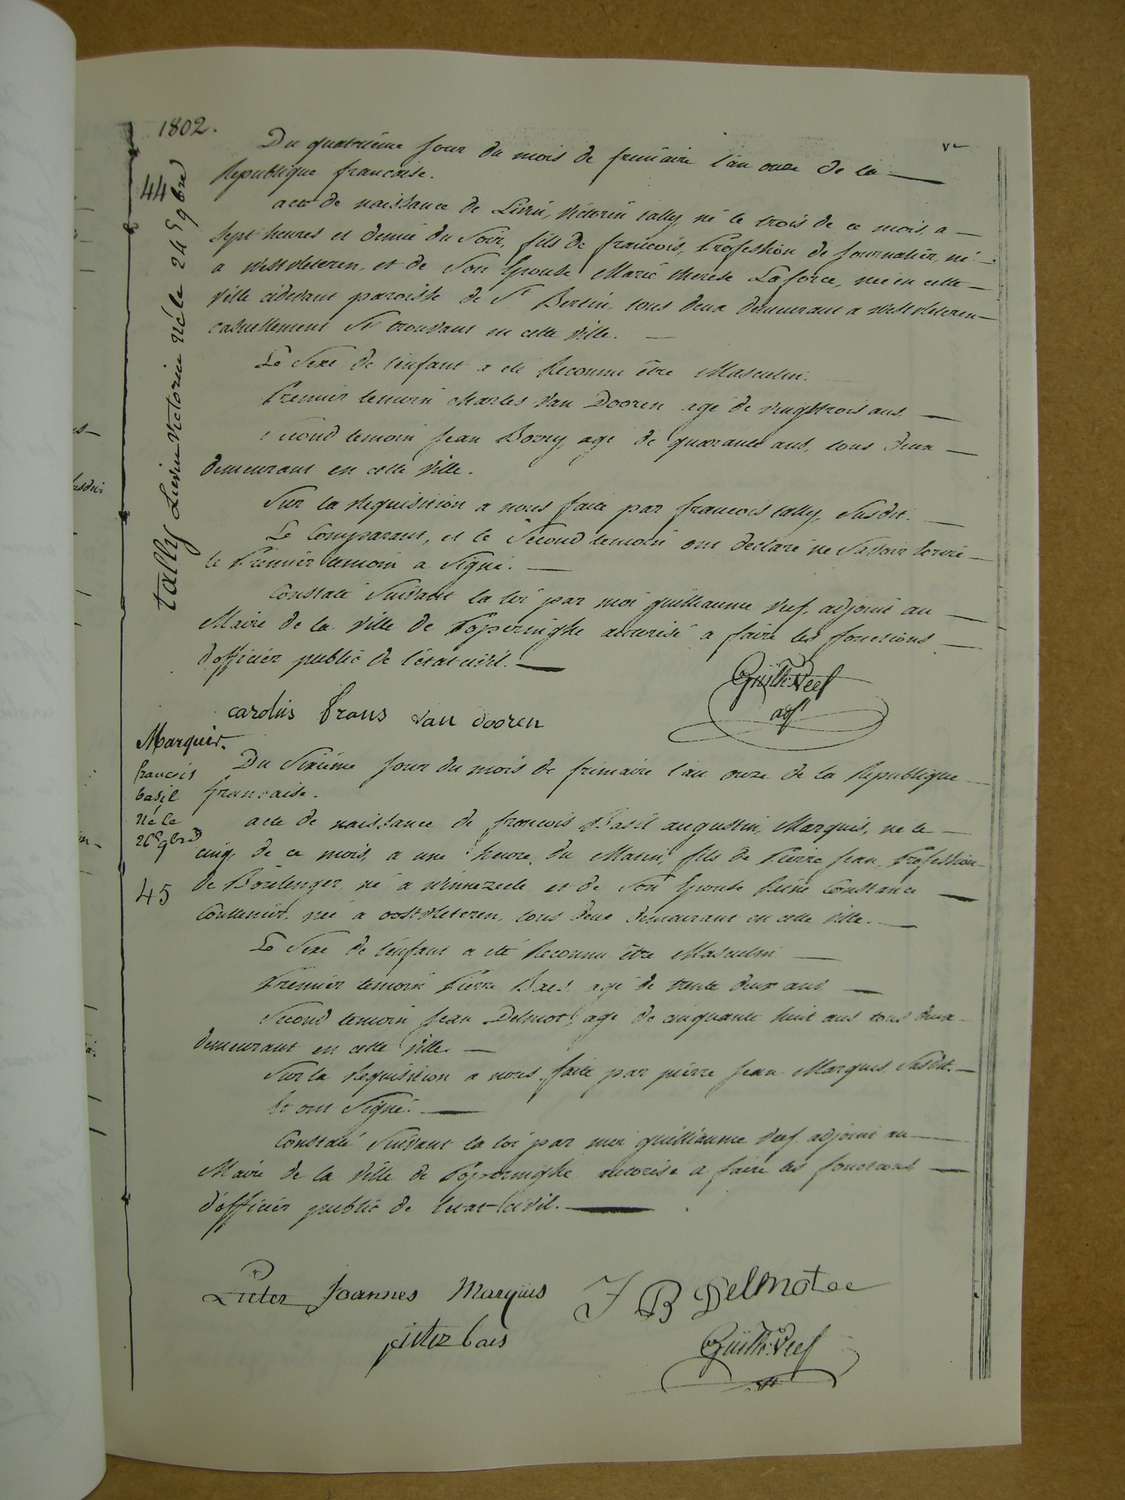 1802.
Du quatrième jour du mois de frimaire l'an onze de la
Republique francaise.
44
tally Livin Victorin né le 24 9bre
acte de naissance de Livin, Victorin tally né le trois de ce mois a
Sept heures et demie du Soir, fils de francois, Profession de journalier, né
a westvleteren, et de Son Epouse Marie therese Laforce, née en cette
ville cidevant paroisse de St Bertin, tous deux demeurant a westvleteren
casuellement Se trouvant en cette ville.
Le Sexe de l'enfant a été Reconnu être Masculin.
Premier temoin charles Van Dooren agé de vingttrois ans
Second temoin jean agé de quarante ans, tous deux
demeurant en cette ville.
Sur la Requisition a nous faite par francois tally Susdit.
Le Comparant, et le Second temoin ont declaré ne Savoir Ecrire
le Premier temoin a Signé.
Constaté Suivant la loi par moi guilliaume Veef adjoint au
Maire de la ville de Poperinghe autorisé a faire les fonctions
d'officier public de l'etat civil.
Guille. Veef
adj
carolus frans van dooren
Marquis.
francois
basil
né le
26e 9bre
45
Du Sixieme jour du mois de frimaire l'an onze de la Republique
francaise.
acte de naissance de francois Basil augustin Marquis, né le
cinq de ce mois, a une heure du Matin, fils de Pierre jean, Profession
de Boulenger, né a winnezeele et de Son Epouse Reine Constance
née a oostvleteren, tous deux demeurant en cette ville.
Le Sexe de l'enfant a été Reconnu être Masculin
Premier temoin Pierre Baes, agé de trente deux ans
Second temoin jean Delmot, agé de cinquante huit ans tous deux
demeurant en cette ville.
Sur la Requisition a nous faite par pierre jean Marquis Susdit.
Et ont Signé.
Constaté Suivant la loi par moi guilliaume Veef adjoint au
Maire de la ville de Poperinghe autorisé a faire les fonctions
d'officier public de l'etat civil.
Pieter Joannes Marquis
J B Delmotee
pieter baes
Guille. Veef